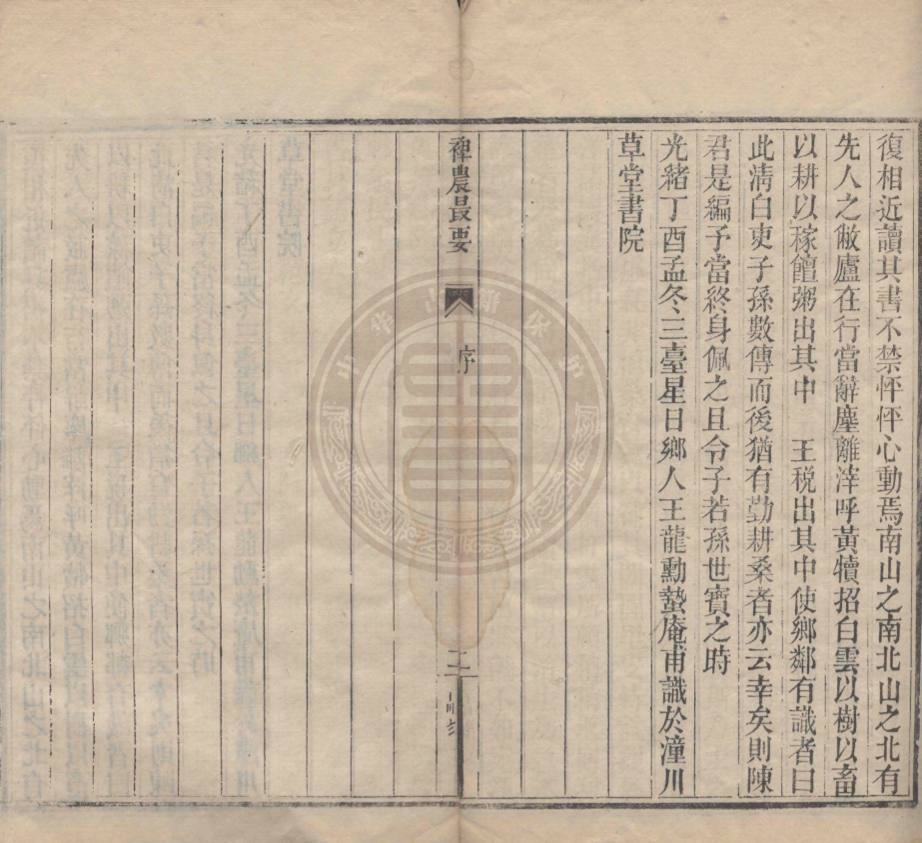 復相近讀其書不禁怦怦心動焉南山之南北山之北有
先人之敝廬在行當辭塵離滓呼黃犢招白雲以樹以畜
以耕以稼饘粥出其中　王稅出其中使鄉鄰有識者曰
此淸白吏子孫數傳而後猶有勤耕桑者亦云幸矣則陳
君是編予當終身佩之且令子若孫世寶之時
光緒丁酉孟冬三臺星日鄉人王龍勳蟄庵甫識於潼川
草堂書院
裨農最要
序
二